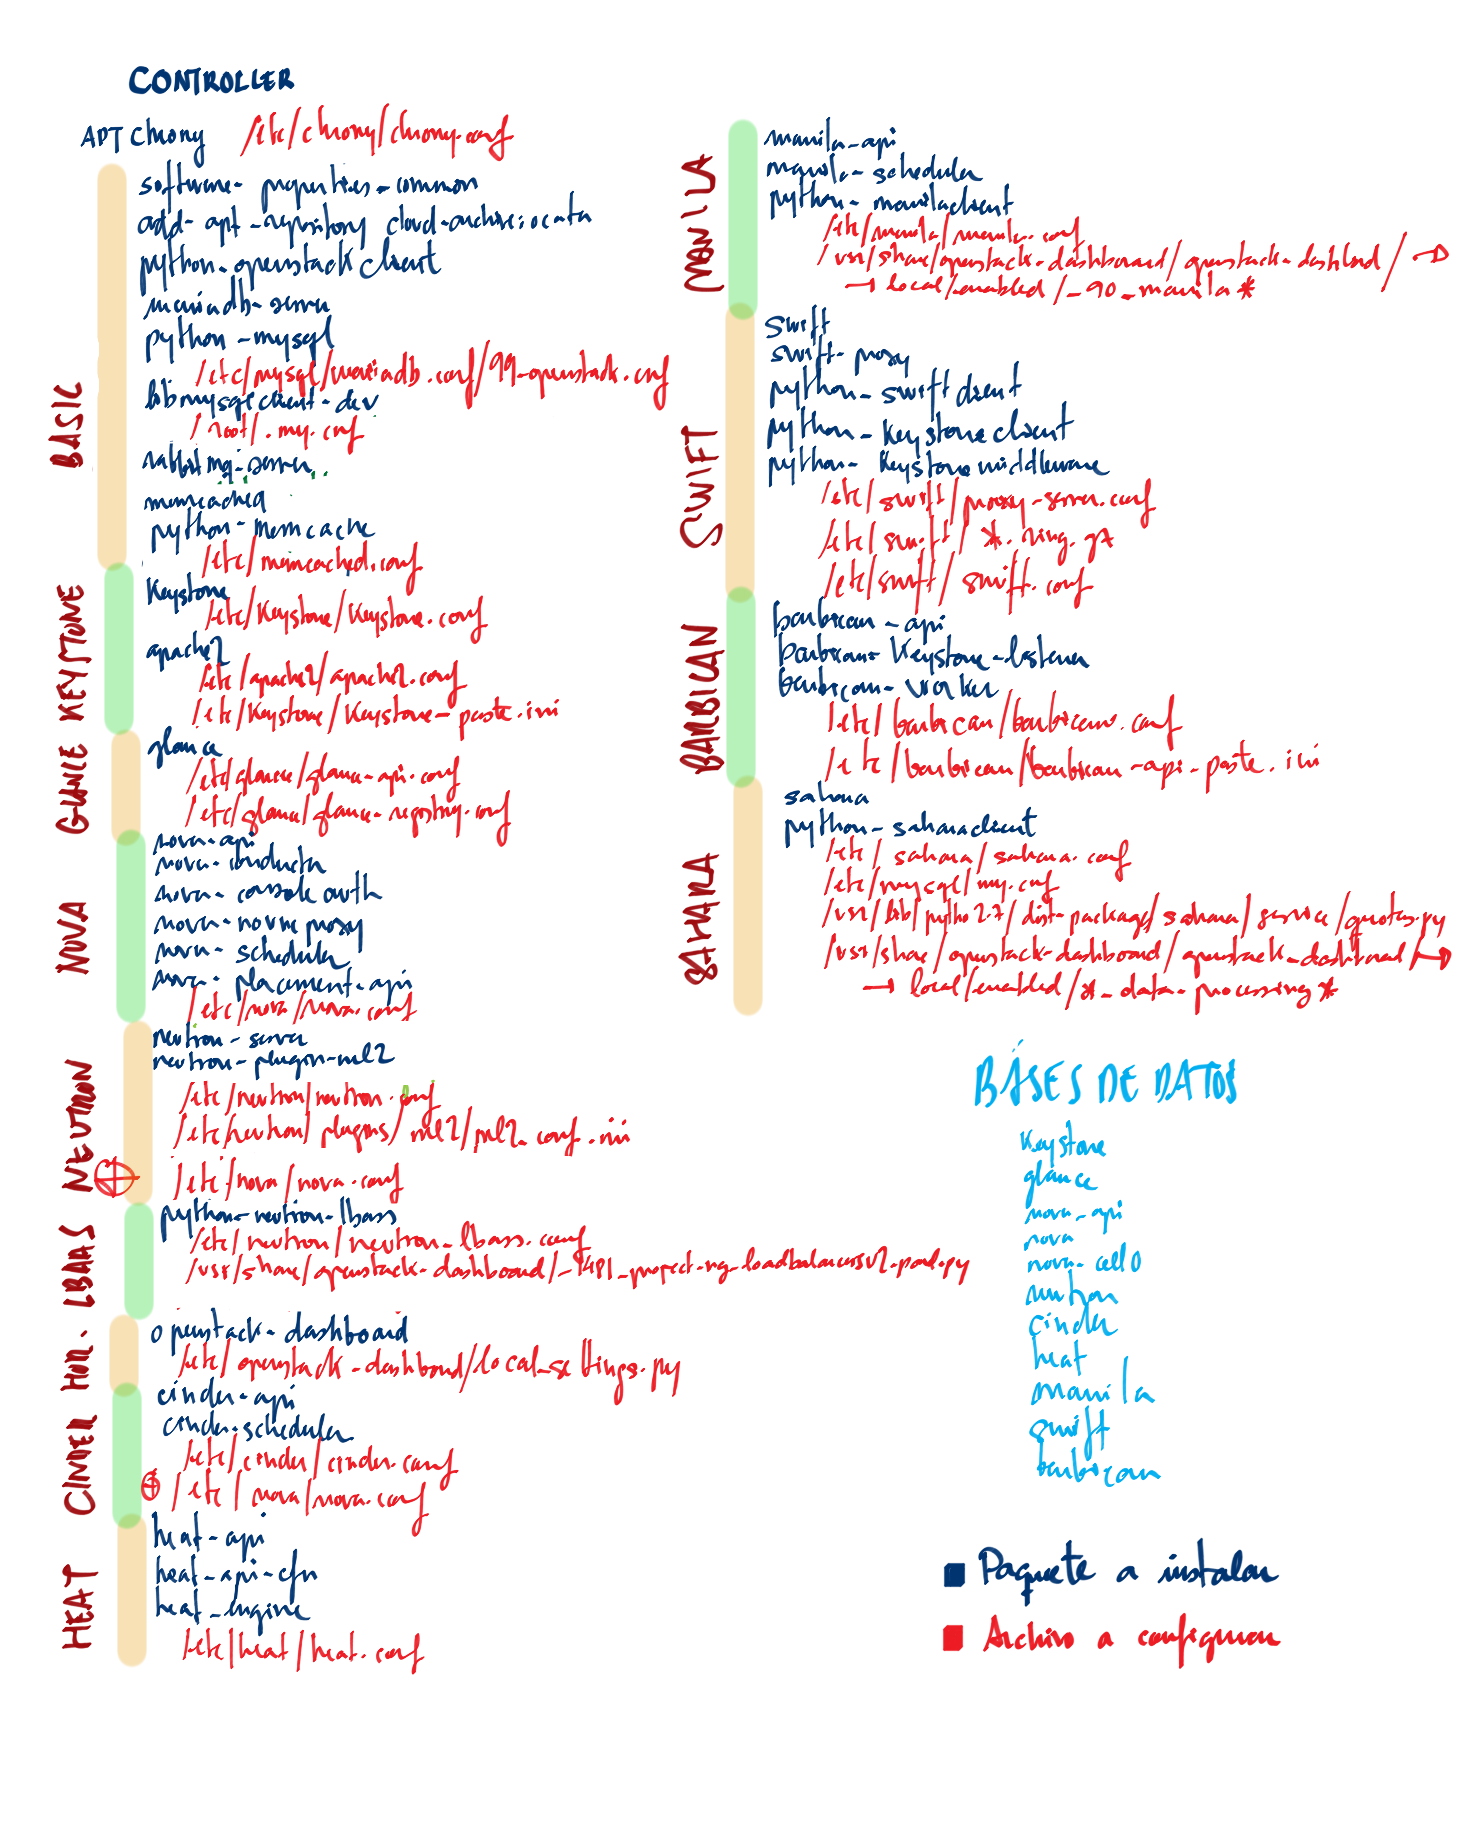 CONTROLLER
APT chrony /etc/chrony/chrony.conf
BASIC
software-properties-common
add-apt-repository cloud-archive:ocata
python-openstackclient
mariadb-server
python-mysql
/etc/mysql/mariadb.conf/99-openstack.cnf
libmysqlclient-dev
/root/.my.cnf
rabbitmq-server
memcached
python-memcache
/etc/memcached.conf
KEYSTONE
Keystone
/etc/Keystone/Keystone.conf
apache2
/etc/apache2/apache2.conf
/etc/Keystone/Keystone-paste.ini
GLANCE
glance
/etc/glance/glance-api.conf
/etc/glance/glance-registry.conf
NOVA
nova-api
nova-conductor
nova-console auth
nova-novnc proxy
nova-scheduler
nova-placement-api
/etc/nova/nova.conf
NEUTRON
neutron-server
neutron-plugin-ml2
/etc/neutron/neutron.conf
/etc/neutron/plugins/ml2/ml2_conf.ini
/etc/nova/nova.conf
LBAAS
python-neutron-lbaas
/etc/neutron/neutron_lbaas.conf
/usr/share/openstack-dashboard/_1481_project_ng_loadbalancersv2_panel.py
HOR.
openstack-dashboard
/etc/openstack-dashboard/local_settings.py
CINDER
cinder-api
cinder-scheduler
/etc/cinder/cinder.conf
/etc/nova/nova.conf
HEAT
heat-api
heat-api-cfn
heat-engine
/etc/heat/heat.conf
MANILA
manila-api
manila-scheduler
python-manilaclient
/etc/manila/manila.conf
/usr/share/openstack-dashboard/openstack-dashboard/→
→ local/enabled/_90_manila*
SWIFT
swift
swift-proxy
python-swiftclient
python-Keystoneclient
python-Keystonemiddleware
/etc/swift/proxy-server.conf
/etc/swift/*.ring.gz
/etc/swift/swift.conf
BARBICAN
barbican-api
barbican-Keystone-listener
barbican-worker
/etc/barbican/barbican.conf
/etc/barbican/barbican-api-paste.ini
SAHARA
sahara
python-saharaclient
/etc/sahara/sahara.conf
/etc/mysql/my.cnf
/usr/lib/pytho2.7/dist-package/sahara/service/quotas.py
/usr/share/openstack-dashboard/openstack_dashboard/→
→ local/enabled/*_data-processing*
BÁSES DE DATOS
Keystone
glance
nova-api
nova
nova-cell0
neutron
cinder
heat
manila
swift
barbican
Paquete a instalar
Archivo a configurar